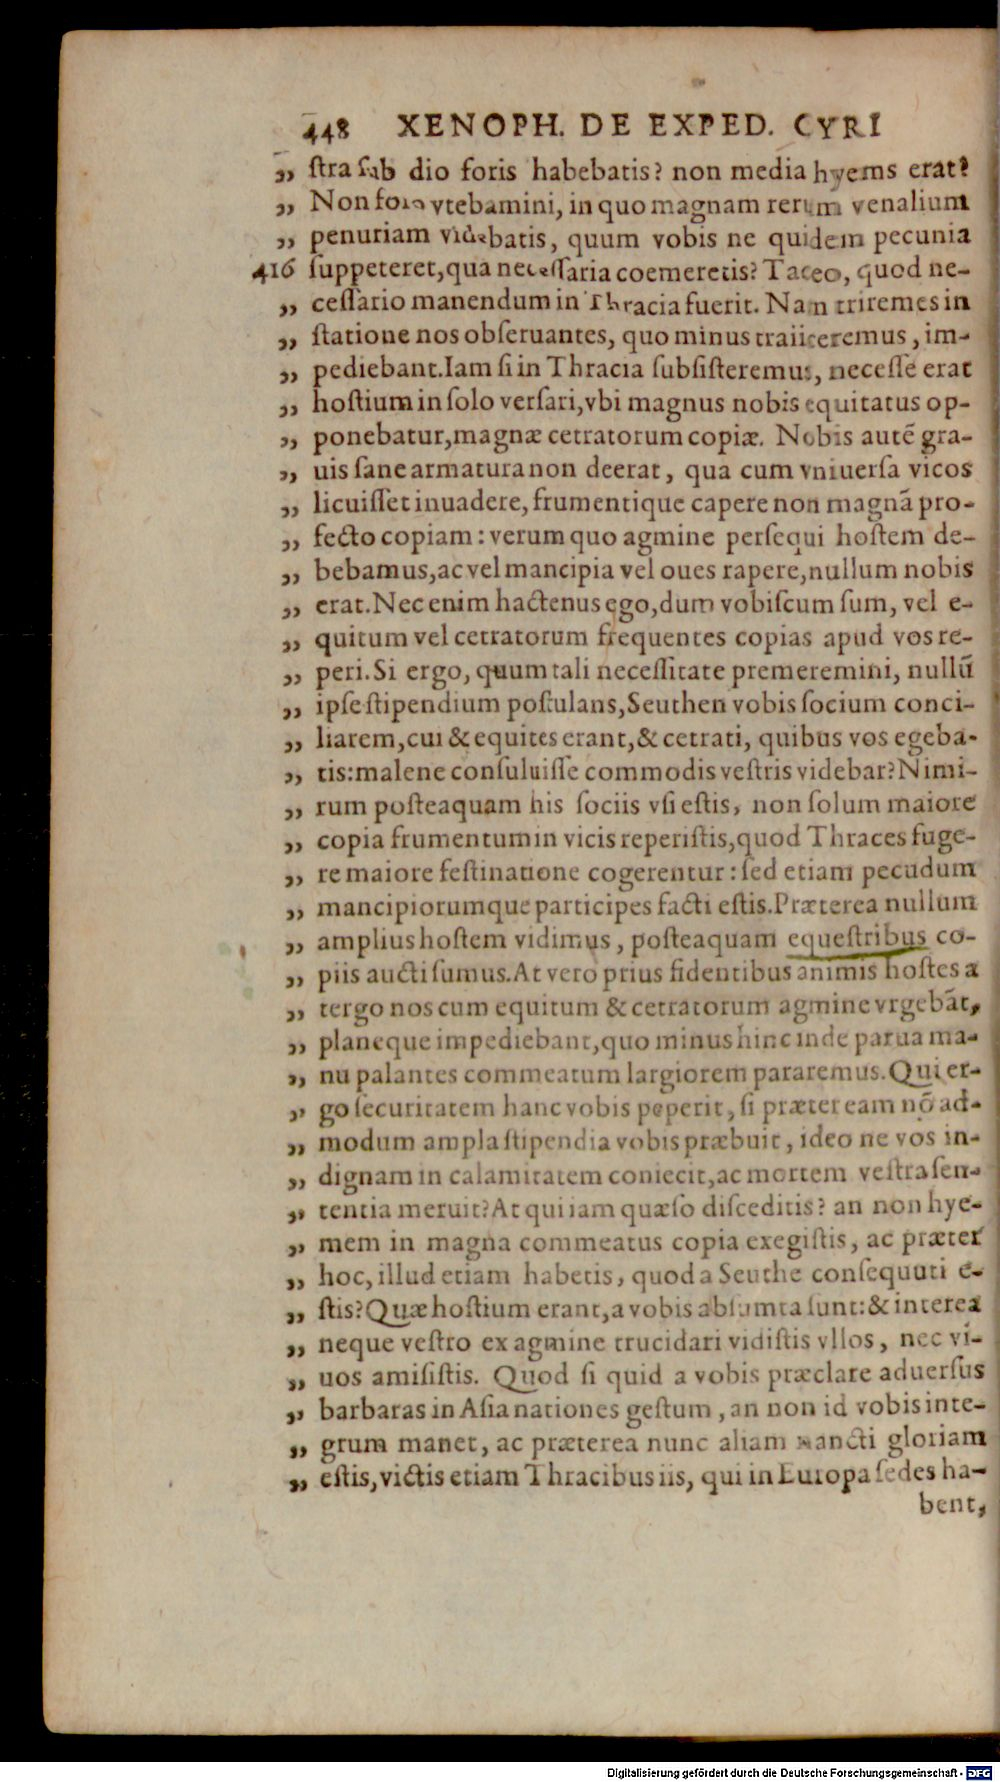 448 XENOPH. DE EXPED. CYRI
„ ſtra ſub dio foris habebatis? non media hyems erat?
„ Non foro vtebamini, in quo magnam rerum venalium
„ penuriam videbatis, quum vobis ne quidem pecunia
416 ſuppeteret, qua neceſſaria coemeretis? Taceo, quod ne-
„ ceſſario manendum in Thracia fuerit. Nam triremes in
„ ſtatione nos obſeruantes, quo minus traiiceremus, im-
„ pediebant. Iam ſi in Thracia ſubſiſteremus, neceſſe erat
„ hoſtium in ſolo verſari, vbi magnus nobis equitatus op-
„ ponebatur, magnæ cetratorum copiæ. Nobis autē gra-
„ uis ſane armatura non deerat, qua cum vniuerſa vicos
„ licuiſſet inuadere, frumentique capere non magnā pro-
„ fecto copiam: verum quo agmine perſequi hoſtem de-
„ bebamus, ac vel mancipia vel oues rapere, nullum nobis
„ erat. Nec enim hactenus ego, dum vobiſcum ſum, vel e-
„ quitum vel cetratorum frequentes copias apud vos re-
„ peri. Si ergo, quum tali neceſſitate premeremini, nullū
„ ipſe ſtipendium poſtulans, Seuthen vobis ſocium conci-
„ liarem, cui & equites erant, & cetrati, quibus vos egeba-
„ tis: malene conſuluiſſe commodis veſtris videbar? Nimi-
„ rum poſteaquam his ſociis vſi eſtis, non ſolum maiore
„ copia frumentum in vicis reperiſtis, quod Thraces fuge-
„ re maiore feſtinatione cogerentur: ſed etiam pecudum
„ mancipiorumque participes facti eſtis. Præterea nullum
„ amplius hoſtem vidimus, poſteaquam equeſtribus co-
„ piis aucti ſumus. At vero prius fidentibus animis hoſtes a
„ tergo nos cum equitum & cetratorum agmine vrgebāt,
„ planeque impediebant, quo minus hinc inde parua ma-
„ nu palantes commeatum largiorem pararemus. Qui er-
„ go ſecuritatem hanc vobis peperit, ſi præter eam nō ad-
„ modum ampla ſtipendia vobis præbuit, ideo ne vos in-
„ dignam in calamitatem coniecit, ac mortem veſtra ſen-
„ tentia meruit? At qui iam quæſo diſceditis? an non hye-
„ mem in magna commeatus copia exegiſtis, ac præter
„ hoc, illud etiam habetis, quod a Seuthe conſequuti e-
„ ſtis? Quæ hoſtium erant, a vobis abſumta ſunt: & interea
„ neque veſtro ex agmine trucidari vidiſtis vllos, nec vi-
„ uos amiſiſtis. Quod ſi quid a vobis præclare aduerſus
„ barbaras in Aſia nationes geſtum, an non id vobis inte-
„ grum manet, ac præterea nunc aliam nancti gloriam
„ eſtis, victis etiam Thracibus iis, qui in Europa ſedes ha-
bent,
Digitalisierung gefördert durch die Deutsche Forschungsgemeinschaft - DFG